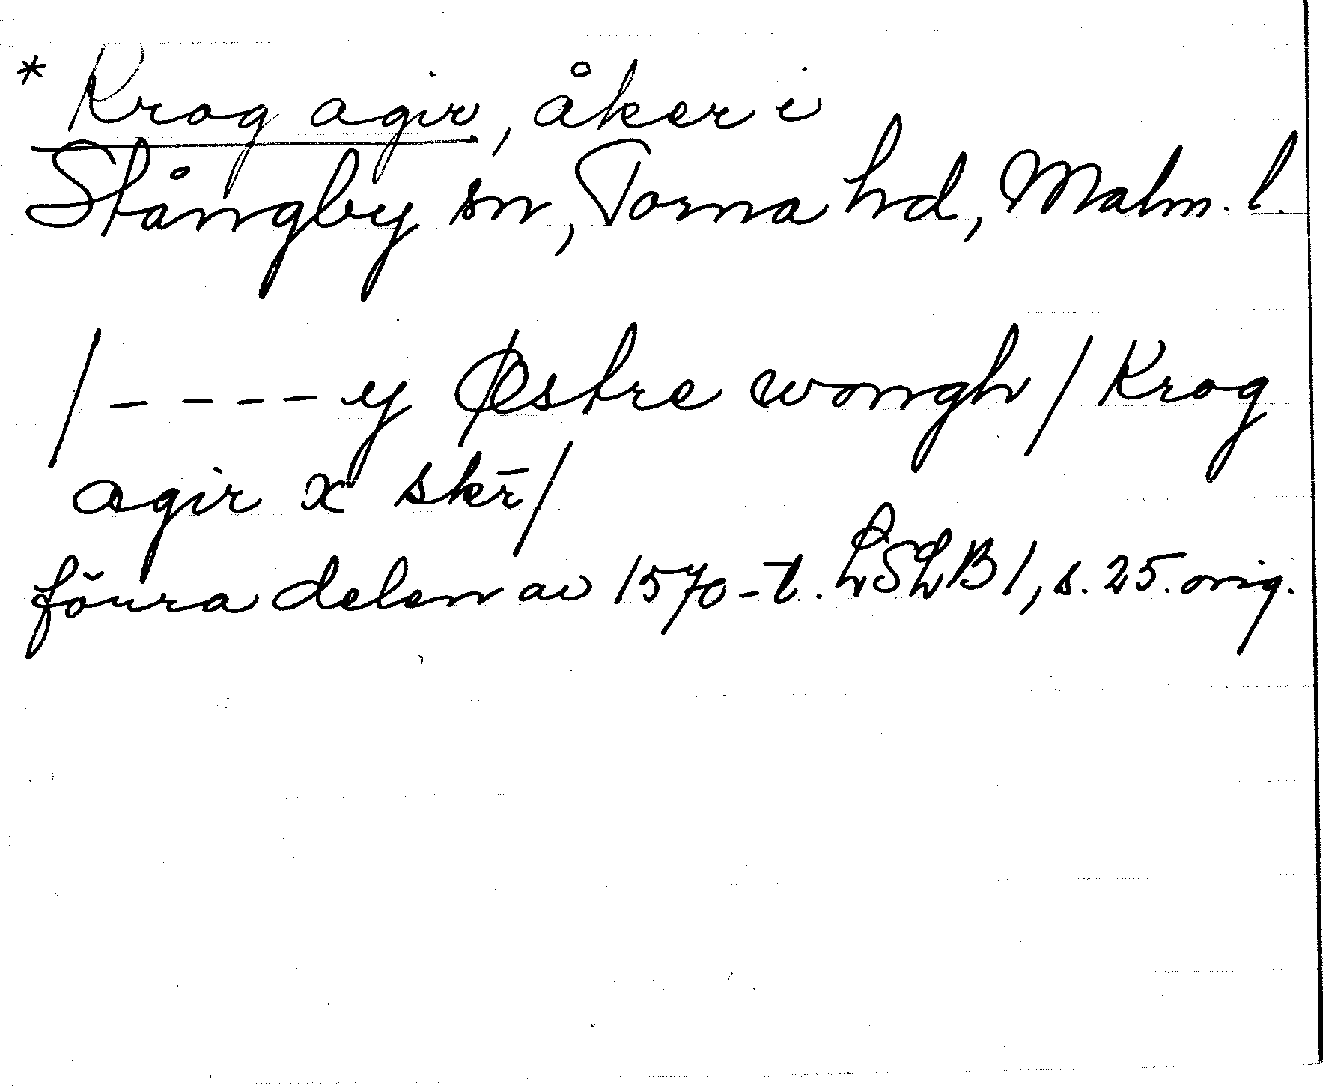 * Krog agir, åker i
Stångby sn, Torna hd, Malm. l.
/ - - - - y Østre wongh / Krog
agir x skr̄ /
förra delen av 1570-t. LSLB 1, s. 25. orig.